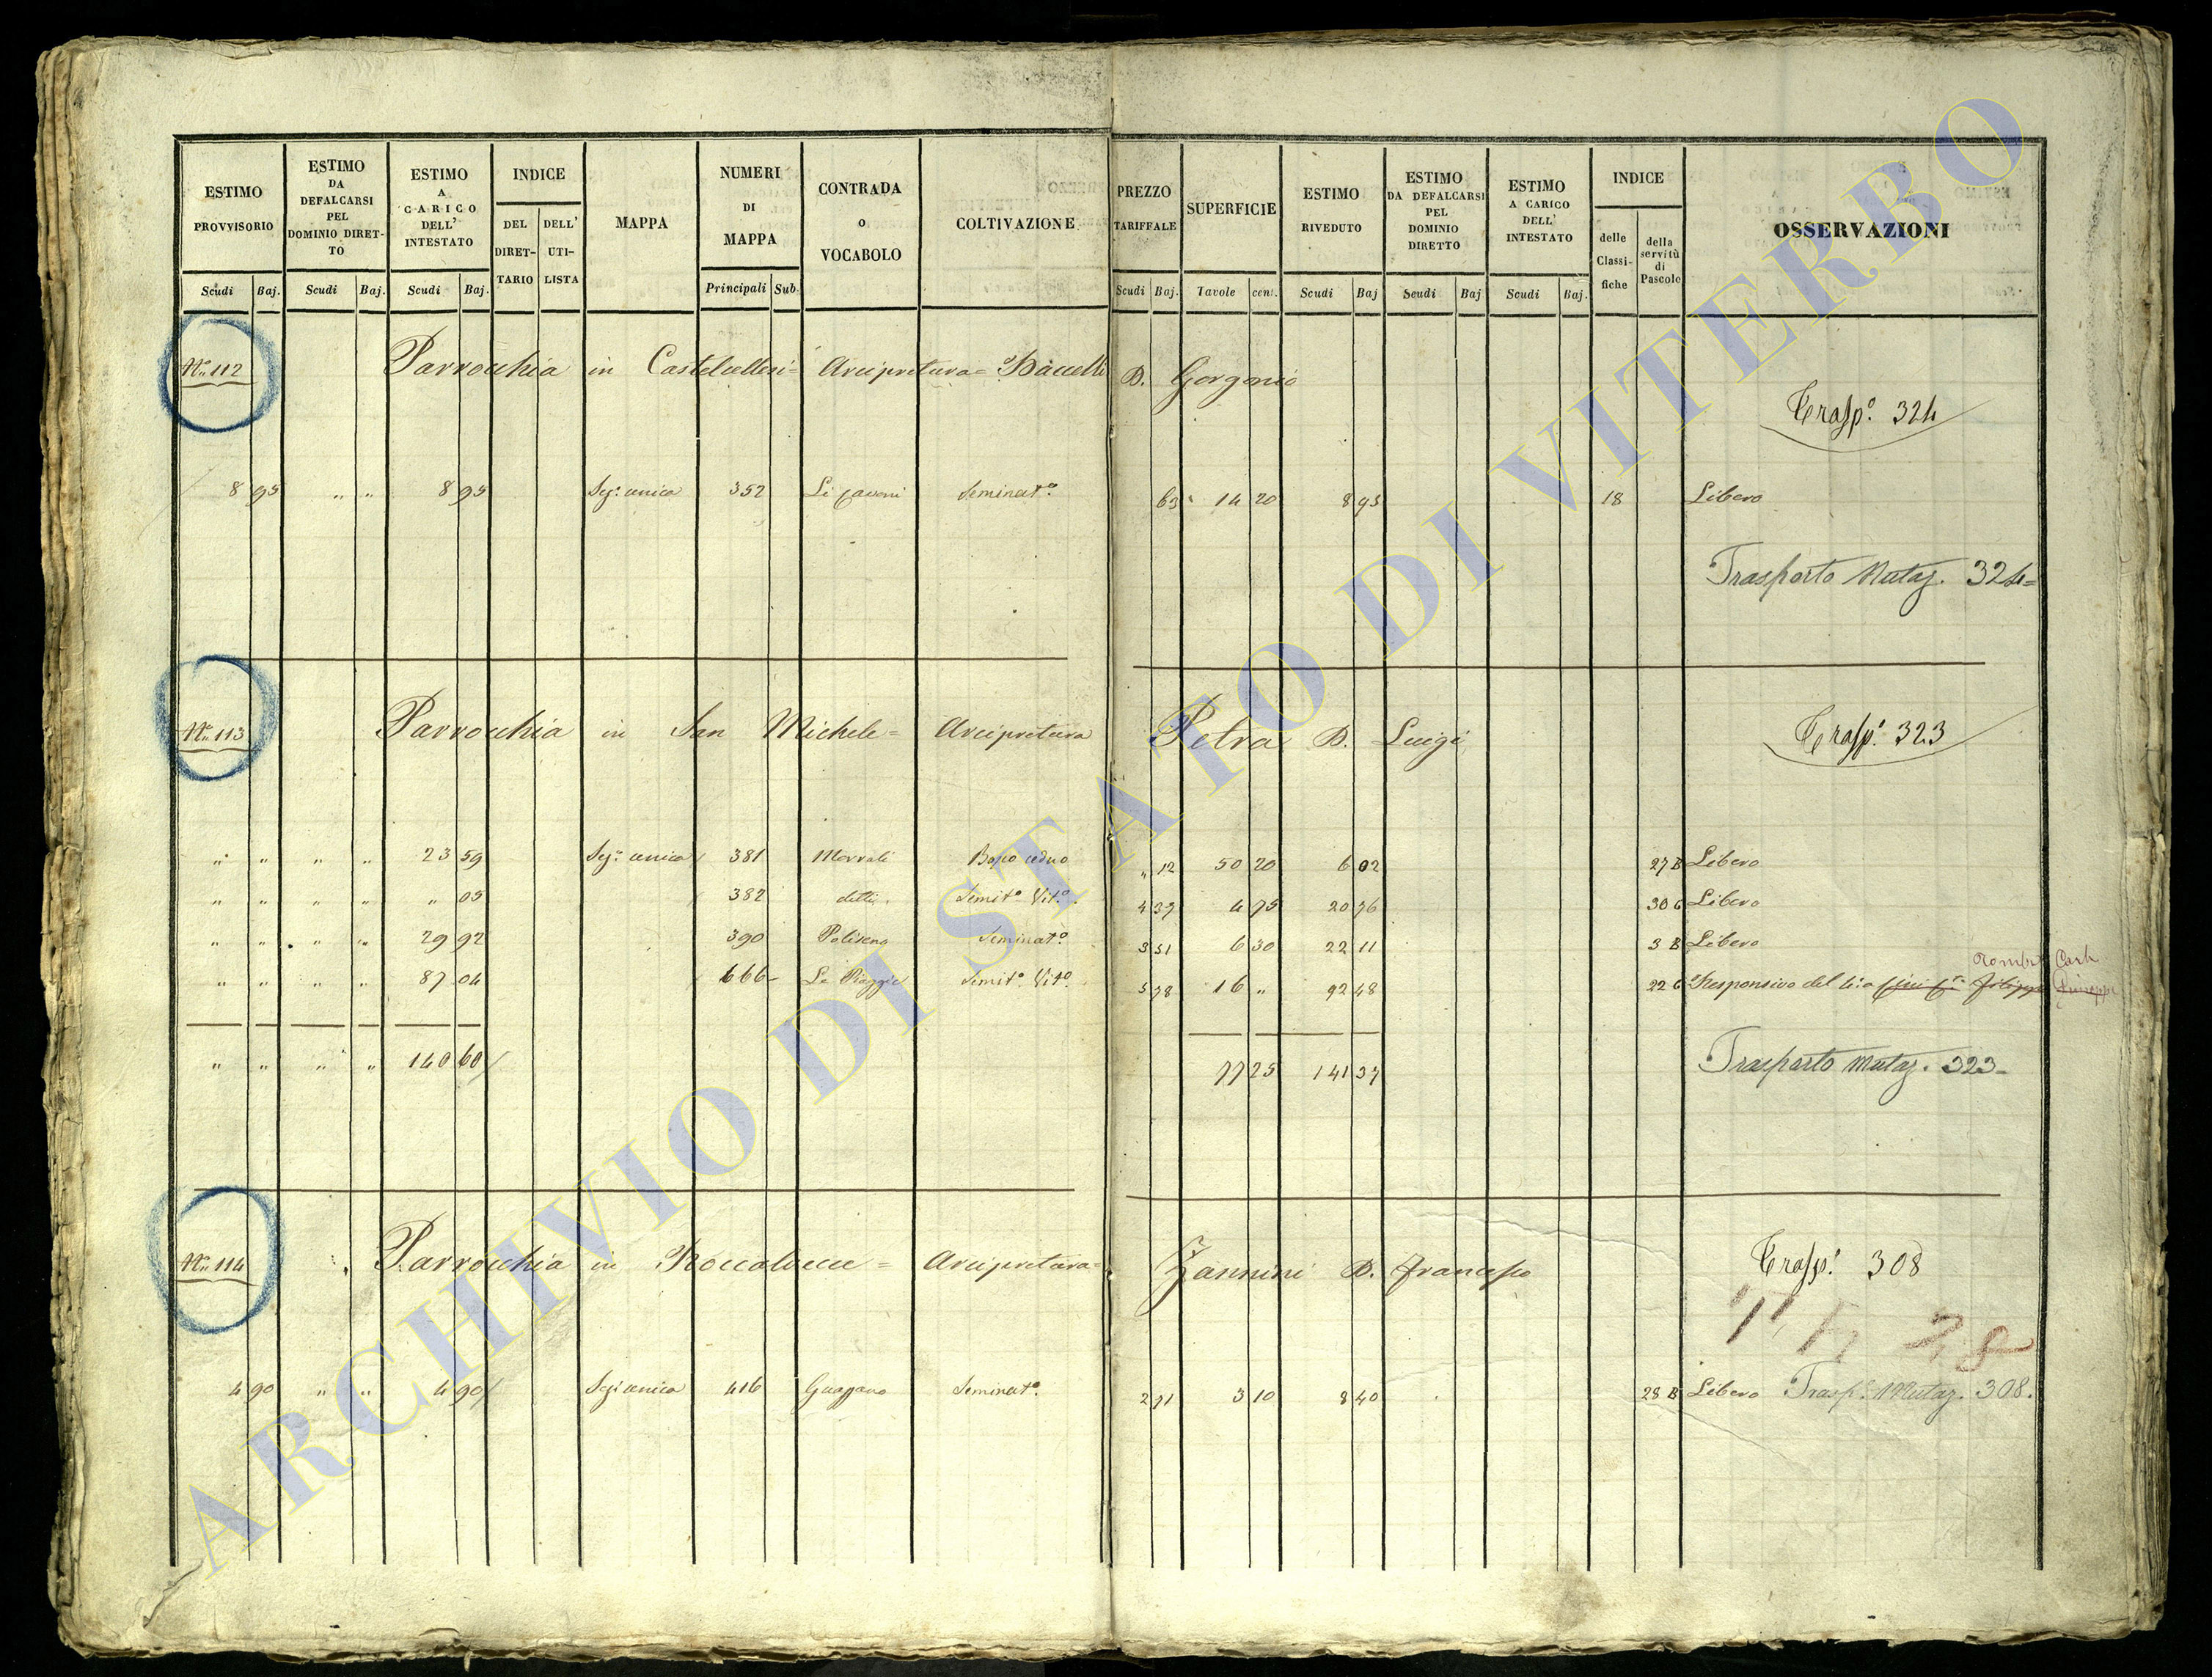 ESTIMO PROVVISORIO
ESTIMO DA DEFALCARSI PEL DOMINIO DIRET-TO
ESTIMO A CARICO DELL' INTESTATO
INDICE
DEL DIRET-TARIO
DELL' UTI-LISTA
MAPPA
NUMERI DI MAPPA
CONTRADA o VOCABOLO
COLTIVAZIONE
PREZZO TARIFFALE
SUPERFICIE
ESTIMO RIVEDUTO
ESTIMO DA DEFALCARSI PEL DOMINIO DIRETTO
ESTIMO A CARICO DELL' INTESTATO
INDICE
delle Classi-fiche
della servitù di Pascolo
OSSERVAZIONI
Scudi Baj. Scudi Baj. Scudi Baj. Principali Sub. Scudi Baj. Tavole cent. Scudi Baj Scudi Baj Scudi Baj.
No. 112 Parrocchia in Castelcellesi = Arcipretura = Baccelli D. Gorgonio
Trasp.o 324
8 95 " " 8 95 Sez.e unica 352 Li Cavoni Seminat.o 63 14 20 8 95 18 Libero
Trasporto Mutaz. 324=
No. 113 Parrocchia in San Michele = Arcipretura Petra D. Luigi
Trasp.o 323
" " " " 23 59 Sez.e unica 381 Morrali Bosco ceduo " 12 50 20 6 02 27 B Libero
" " " " " 05 382 detto Semit.o Vit.o 4 37 4 75 20 76 30 C Libero
" " " " 29 92 390 Poliseno Seminat.o 3 51 6 30 22 11 3 B Libero
" " " " 87 04 666 Le Piaggie Semit.o Vit.o 5 78 16 " 92 48 22 C Responsivo del 4.o a
" " " " 140 60 77 25 141 37
Trasporto Mutaz. 323-
No. 114 Parrocchia in Roccalvecce = Arcipretura = Zannini D. Francesco
Trasp.o 308
4 90 " " 4 90 Sez.e unica 416 Seminat.o 2 71 3 10 8 40 28 B Libero Trasp.o Mutaz. 308.
ARCHIVIO DI STATO DI VITERBO